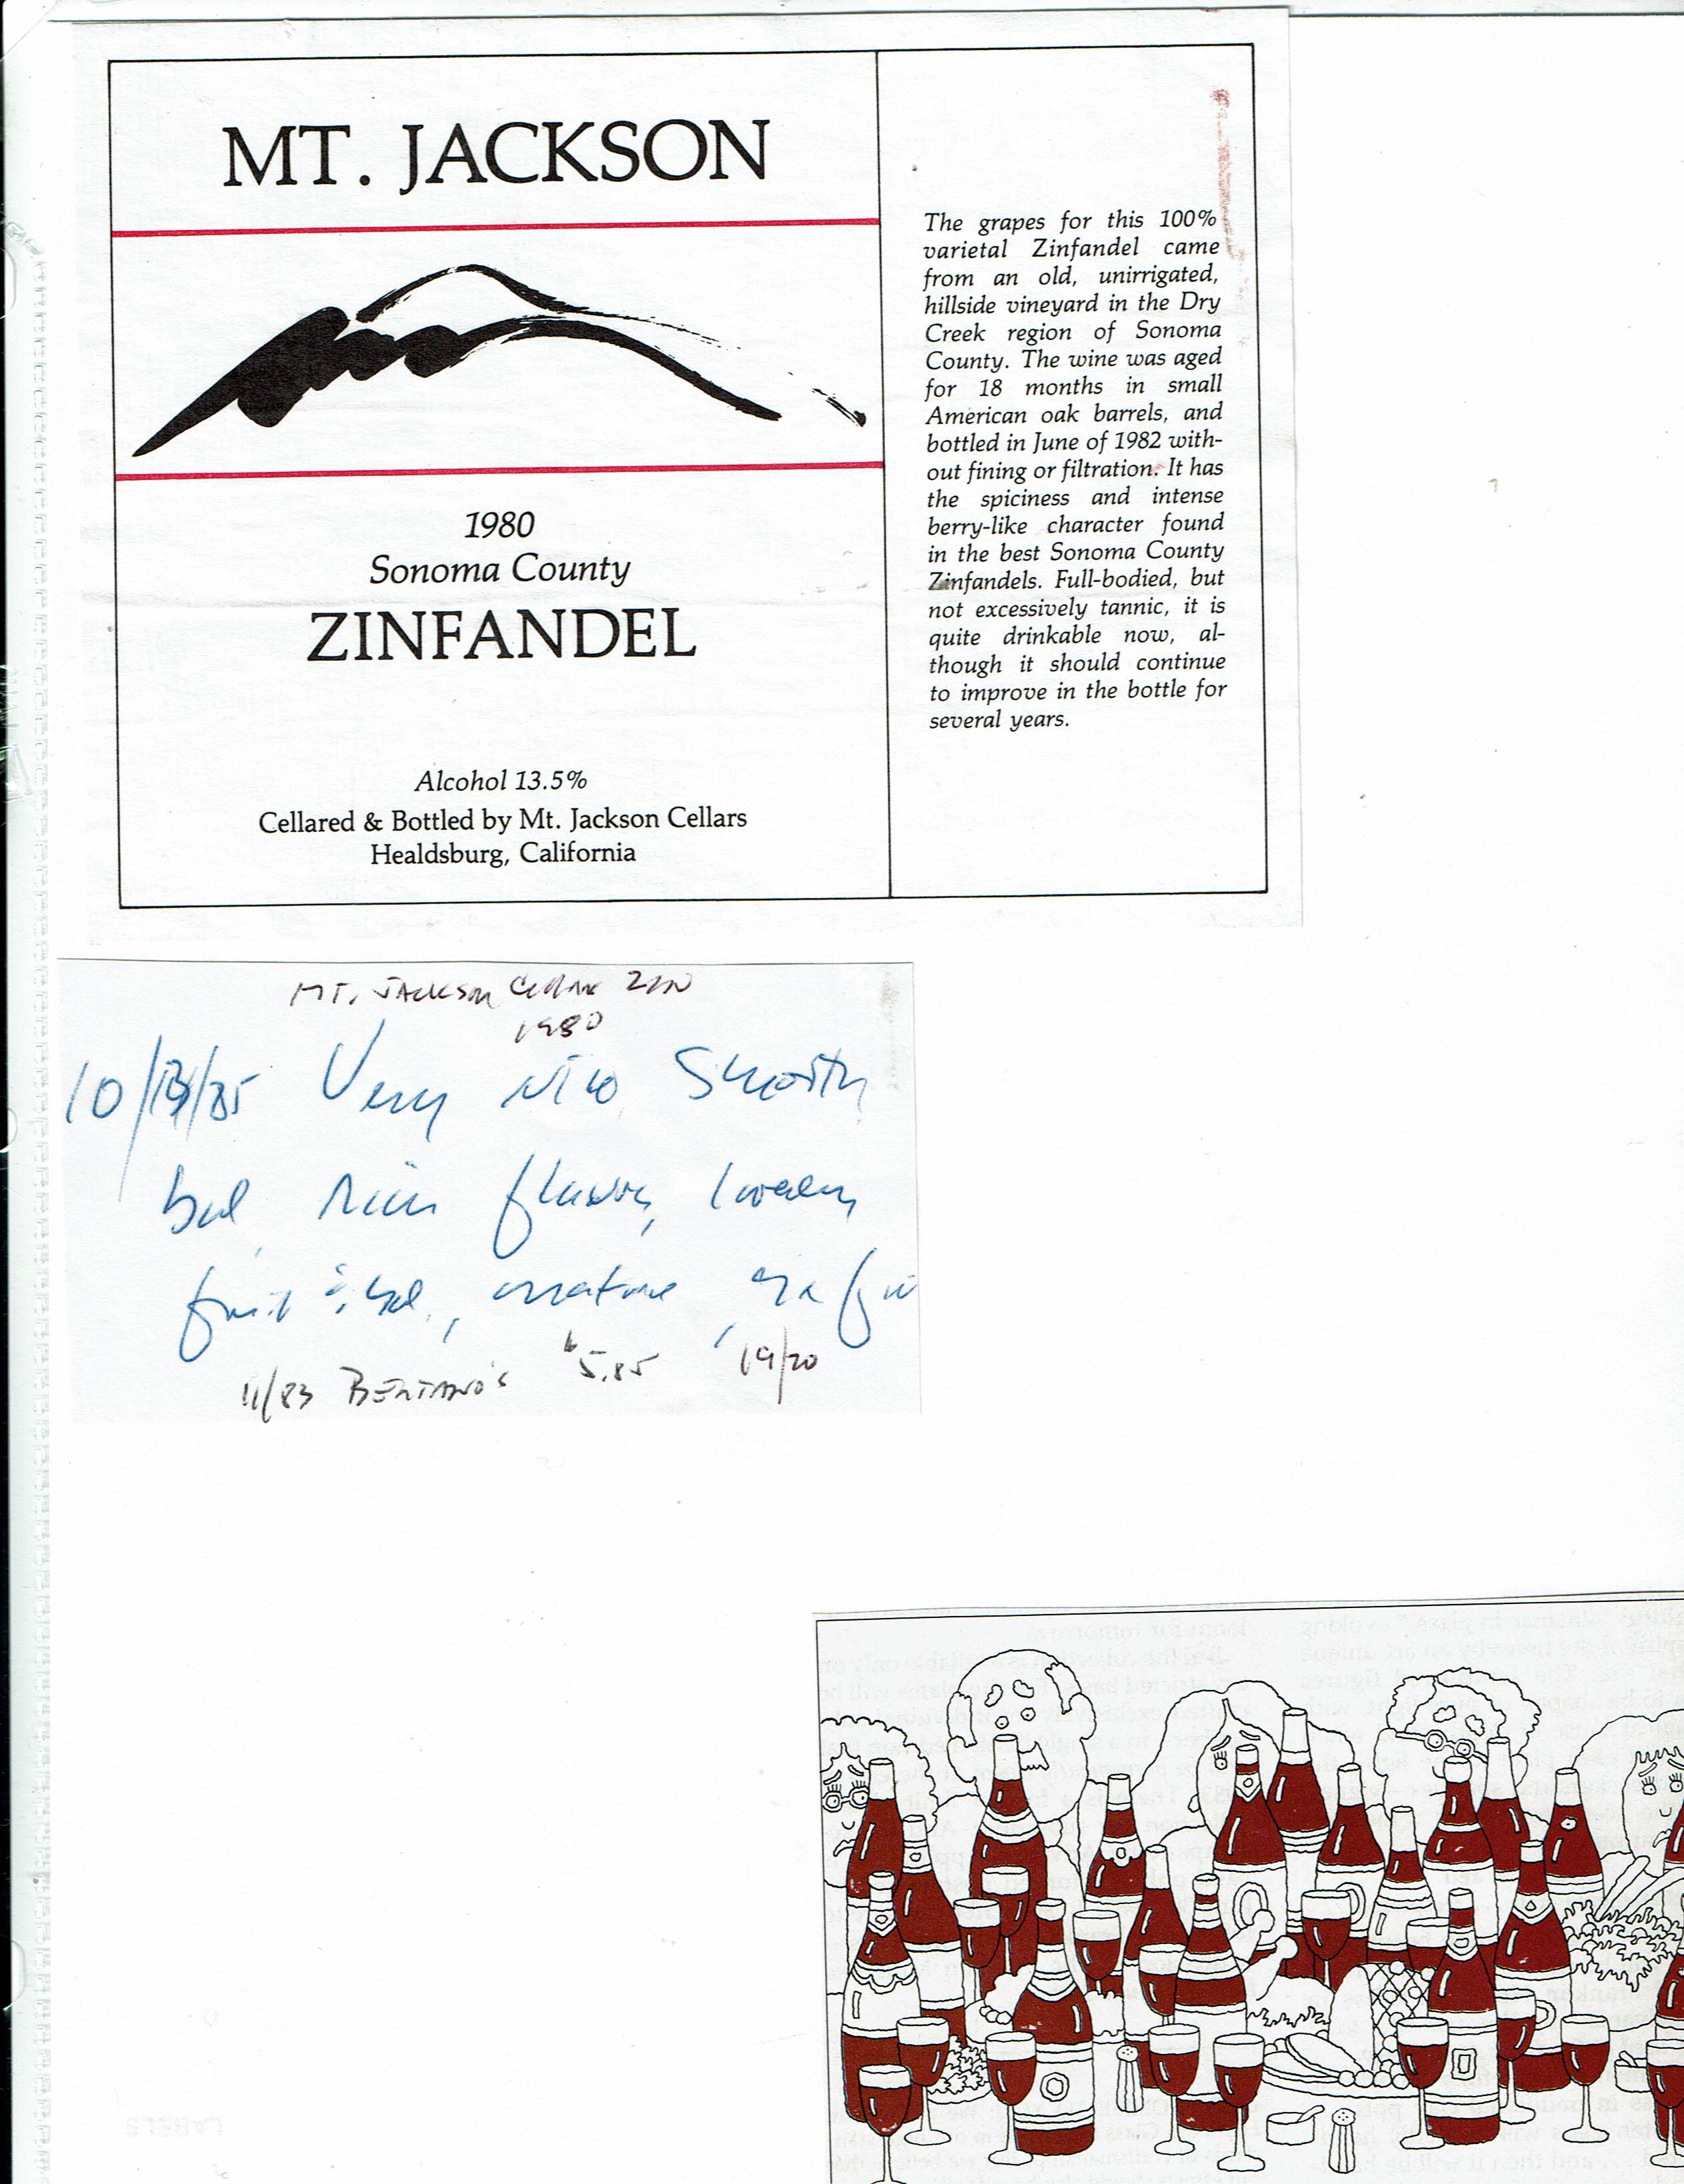 MT. JACKSON
1980
Sonoma County
ZINFANDEL
Alcohol 13.5%
Cellared & Bottled by Mt. Jackson Cellars
Healdsburg, California
The grapes for this 100%
varietal Zinfandel came
from an old, unirrigated,
hillside vineyard in the Dry
Creek region of Sonoma
County. The wine was aged
for 18 months in small
American oak barrels, and
bottled in June of 1982 with-
out fining or filtration. It has
the spiciness and intense
berry-like character found
in the best Sonoma County
Zinfandels. Full-bodied, but
not excessively tannic, it is
quite drinkable now, al-
though it should continue
to improve in the bottle for
several years.
MT. JACKSON CELLARS ZIN
1980
Very nice Smooth
flavor, lovely
fruit mature
11/83 $5.85 19/20